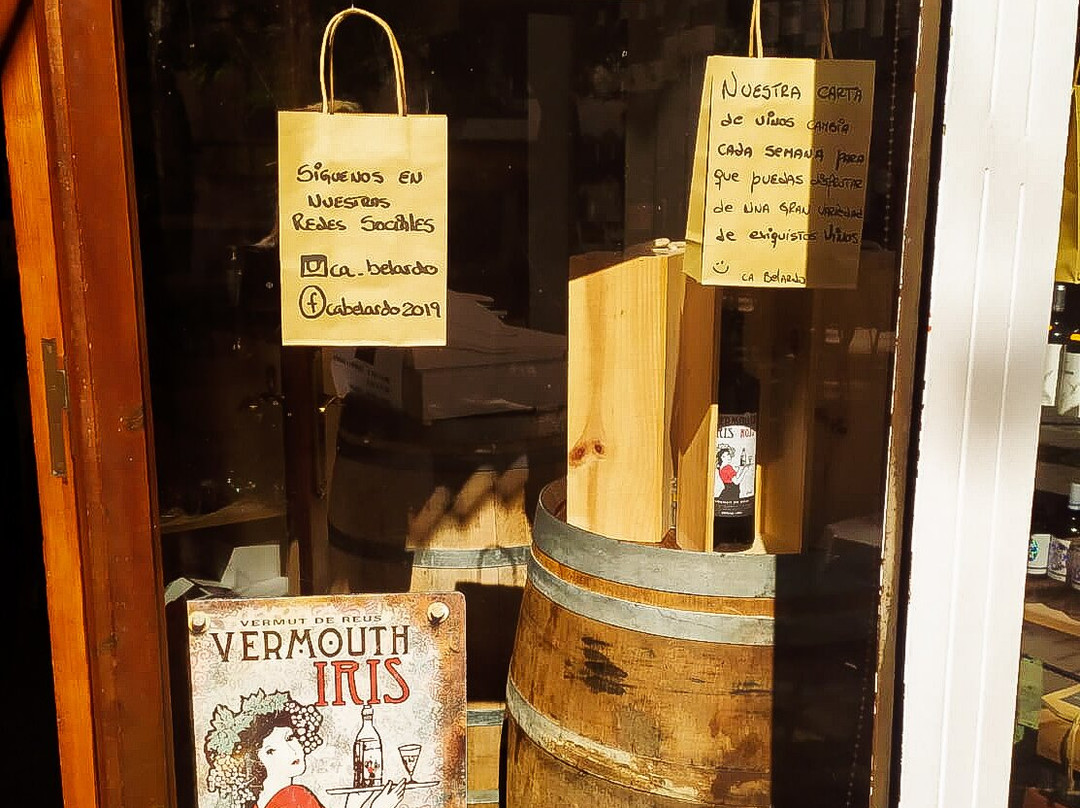 Síguenos en
nuestras
Redes Sociales
ca_belardo
f cabelardo2019
Nuestra carta
de vinos cambia
cada semana para
que puedas disfrutar
de una gran variedad
de exiquistos vinos
ca Belardo
VERMUT DE REUS
VERMOUTH
IRIS
IRIS